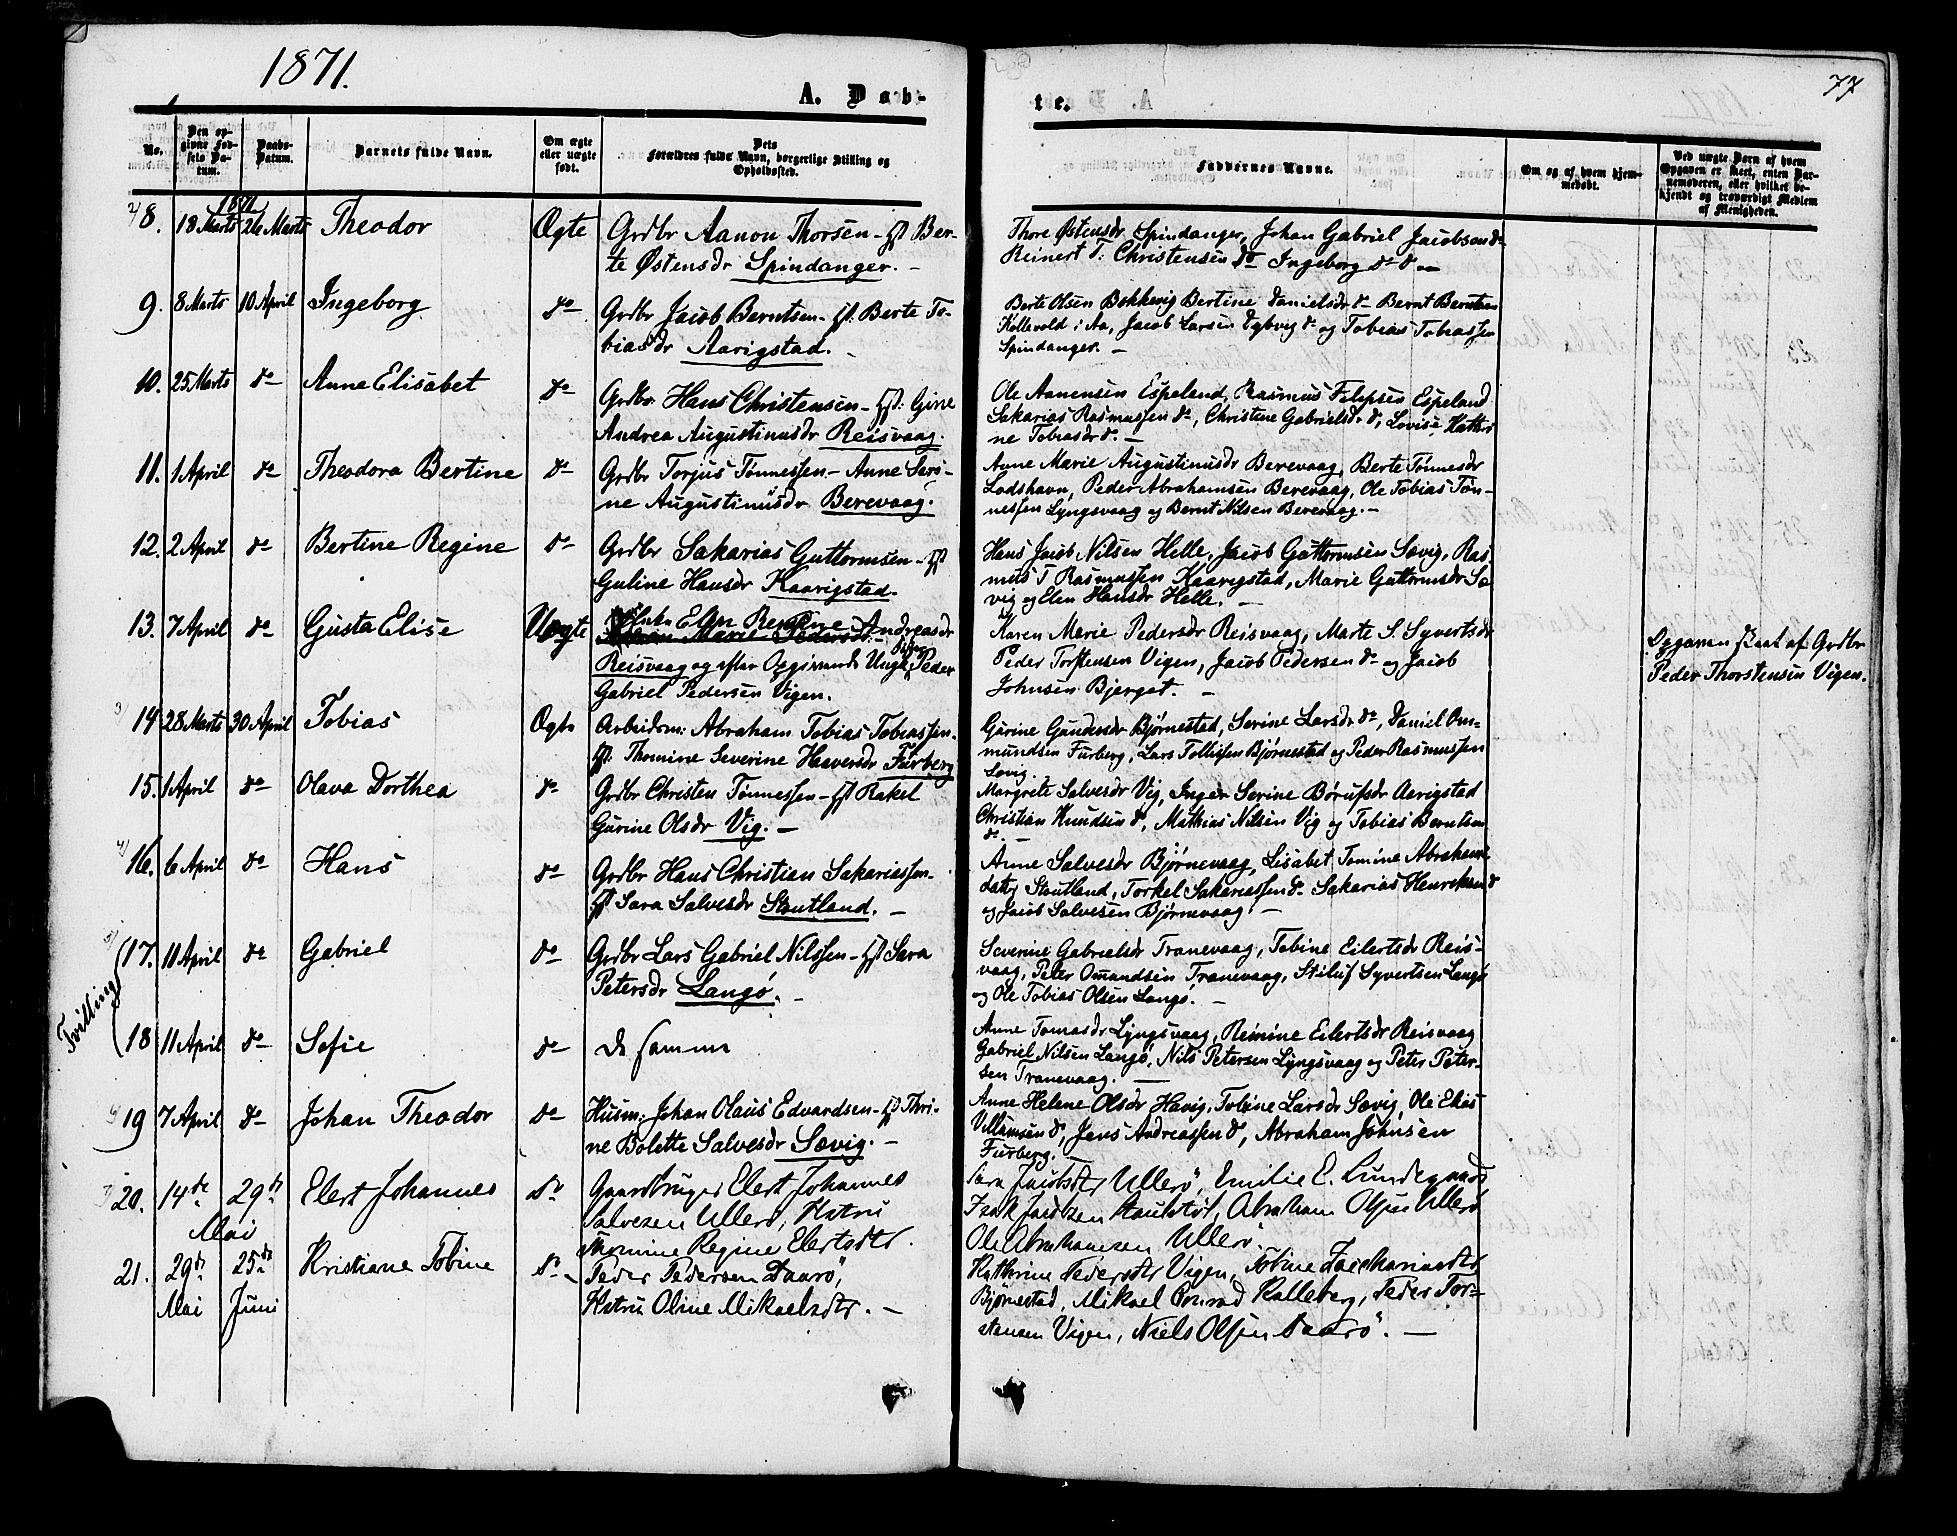 1871.
77
A. Døb-
te.
No.
Den op-
givne Fød-
sels Da-
tum.
Daabs-
Datum.
Barnets fulde Navn.
Om ægte
eller uægte
født.
Dets
Forældres fulde Navn, borgerlige Stilling og
Opholdssted.
Faddernes Navne.
Om og af hvem hjem-
medøbt.
Ved uægte Børn af hvem
Opgaven er skeet, enten Bar-
nemoderen, eller hvilket be-
kjendt og troværdigt Medlem
af Menigheden.
8. 18 Marts 1871 26 Marts Theodor Ægte Grdbr Aanon Thorsen - Hst Ber-
te Østensdr Spindanger. -
Thore Østensdr Spindanger, Johan Gabriel Jacobsen do
Reinert T. Christensen do Ingeborg
9. 8 Marts 10 April Ingeborg do Grdbr Jacob Berntsen - Hst. Berte To-
biasdr Aarigstad. -
Berte Olsen Bokkevig Bertine Danielsdr do Bernt Berntsen
Kollevold i Aa, Jacob Larsen Dybvig do og Tobias Tobiassen
Spindanger. -
10. 25 Marts do Anne Elisabet do Grdbr Hans Christensen - Hst: Gine
Andrea Augustinusdr Reisvaag.
Ole Aanensen Espeland, Rasmus Filipsen Espeland
Sakarias Rasmussen do, Christine Gabrielsdr do, Lovise Kathri-
ne Tobiasdr do. -
11. 1 April do Theodora Bertine do Grdbr Torjus Tønnessen - Anne Seri-
ne Augustinusdr Berevaag.
Anne Marie Augustinusdr Berevaag, Berte Tønnesdr
Lodshavn, Peder Abrahamsen Berevaag, Ole Tobias Tøn-
nessen Lyngsvaag og Bernt Nilsen Berevaag. -
12. 2 April do Bertine Regine do Grdbr Sakarias Guttormsen - Hst
Guline Hansdr Kaarigstad.
Hans Jacob Nilsen Helle, Jacob Guttormsen Sævig, Ras-
mus T Rasmussen Kaarigstad, Marie Guttormsdr Sæ-
vig og Elen Hansdr Helle. -
13. 7 April do Gusta Elise Uægte Enke Elen Regine Andreasdr
Reisvaag og efter Opgivende Ungk Peder
Gabriel Pedersen Vigen.
Karen Marie Pedersdr Reisvaag, Marte S. Syvertsdr
Peder Torstensen Vigen, Jacob Pedersen do og Jacob
Johnsen Bjerget. -
Opgaven skeet af Grdbr
Peder Thorstensen Vigen.
14 28 Marts 30 April Tobias Ægte Arbeidsm: Abraham Tobias Tobiassen.
Hst. Thomine Severine Haaversdr Furberg
Gurine Gundersdr Bjørnestad, Serine Larsdr do, Daniel Om-
mundsen Furberg, Lars Tollisen Bjørnestad og Peder Rasmussen
15. 1 April do Olava Dorthea do Grdbr Christen Tønnessen - Hst Rakel
Gurine Olsdr Vig. -
Margrete Salvesdr Vig, Inger Serine Børufsdr Aerigstad
Christian Knudsen do, Mathias Nilsen Vig og Tobias Berntsen
do. -
16. 6 April do Hans do Grdbr Hans Christian Sakariassen.
Hst Sara Salvesdr Stoutland. -
Anne Salvesdr Bjørnevaag, Lisabet Tomine Abrahams
dater Stoutland, Torkel Sakariassen do Sakarias Henriksen do
og Jacob Salvesen Bjørnevaag -
Tvilling
17. 11 April do Gabriel do Grdbr Lars Gabriel Nilssen - Hst Sara
Petersdr Langø. -
Severine Gabrielsdr Tranevaag, Tobine Eilertsdr Reis-
vaag, Peter Omundsen Tranevaag, Stiluf Syvertsen Langø
og Ole Tobias Olsen Langø. -
18 11 April do Sofie do De samme
Anne Tomasdr Lyngsvaag, Reinine Eilertsdr Reisvaag
Gabriel Nilsen Langø, Nils Petersen Lyngsvaag og Peter Peter-
sen Tranevaag. -
19 7 April do Johan Theodor do Husm: Johan Olaus Edvardsen - Hst Thri-
ne Bolette Salvesdr Sævig. -
Anne Helene Olsdr Havig, Tobine Larsdr Sævig, Ole Elias
Villumsen do, Jens Andreassen do, Abraham Johnsen
Furberg. -
20. 14de 29de Elert Johannes do Gaardbruger Elert Johannes
Mai Salvesen Ullerø, Hstru
Thomine Regine Elertsdtr.
Sara Jacobsdtr Ullerø, Emilie E. Lundegaard
Isak Jacobsen Stoulstøl, Abraham Olsen Ullerø
Ole Abrahamsen Ullerø.
21. 29de 25de Kristiane Tobine do Peder Pedersen Daarø,
Mai Juni Hstru Oline Mikaelsdtr. -
Kathrine Pedersdtr Vigen, Tobine Zachariasdtr
Bjørnestad, Mikael Conrad Kalleberg, Peder Tor-
stensen Vigen, Niels Olsen Daarø. -